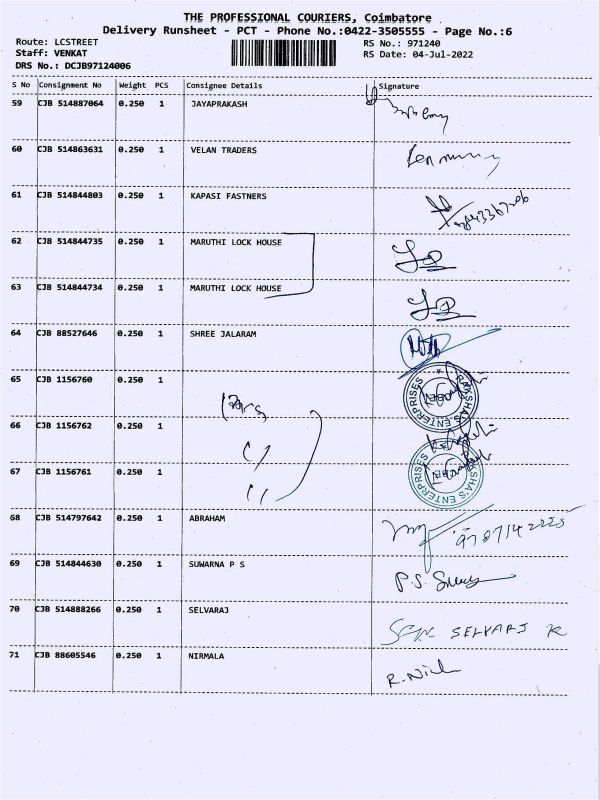 THE PROFESSIONAL COURIERS, Coimbatore
Delivery Runsheet - PCT - Phone No.:0422-3505555 - Page No.:6
Route: LCSTREET
Staff: VENKAT
DRS No.: DCJB97124006
RS No.: 971240
RS Date: 04-Jul-2022
S No Consignment No Weight PCS Consignee Details Signature
59 CJB 514887064 0.250 1 JAYAPRAKASH
60 CJB 514863631 0.250 1 VELAN TRADERS
61 CJB 514844803 0.250 1 KAPASI FASTNERS
62 CJB 514844735 0.250 1 MARUTHI LOCK HOUSE
63 CJB 514844734 0.250 1 MARUTHI LOCK HOUSE
64 CJB 88527646 0.250 1 SHREE JALARAM
65 CJB 1156760 0.250 1
RAKSHA'S ENTERPRISES
66 CJB 1156762 0.250 1
67 CJB 1156761 0.250 1
RAKSHA'S ENTERPRISES
68 CJB 514797642 0.250 1 ABRAHAM
69 CJB 514844630 0.250 1 SUWARNA P S P.S.
70 CJB 514888266 0.250 1 SELVARAJ SELVARJ K
71 CJB 88605546 0.250 1 NIRMALA